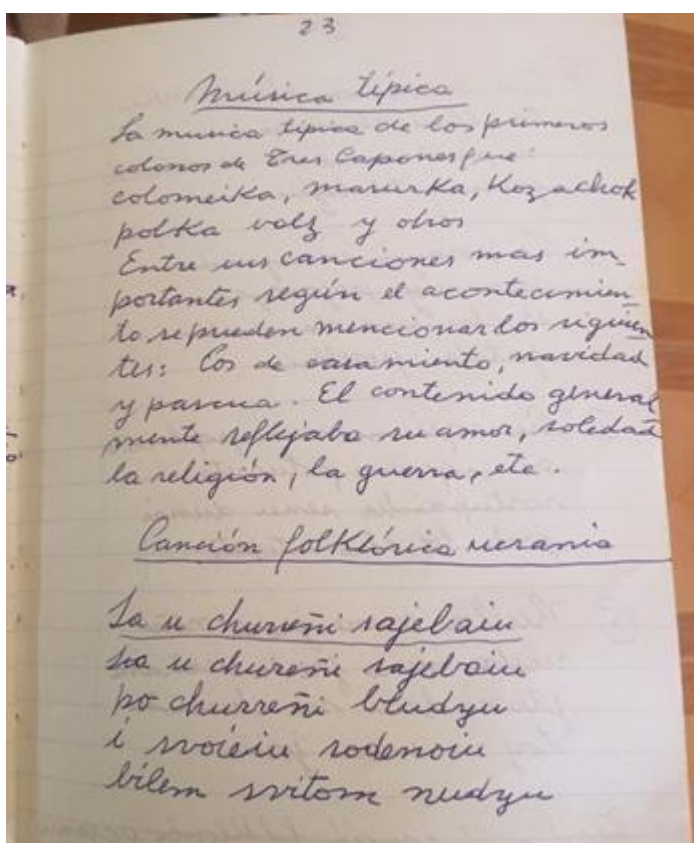 23
Música típica
La musica típica de los primeros
colonos de Tres Capones fue:
colomeika, masurka, Kozachok
polka valz y otros
Entre sus canciones mas im-
portantes según el acontecimien-
to se pueden mencionar los siguien
tes: Los de casamiento, navidad
y pascua. El contenido general
mente reflejaba su amor, soledad
la religión, la guerra, etc.
Canción folKlórica ucrania
Ia u chureñi sajebaiu
Ia u chureñi sajebaiu
po churreñi bludyu
i svoieiu rodenoiu
bilem svitom nudyu